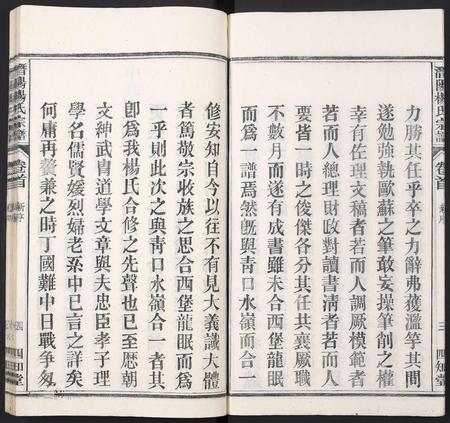 力勝其任乎卒之力辭弗獲濫竽其間
遂勉強執歐蘇之筆敢妄操筆削之權
幸有佐理文稿者若而人調厥模範者
若而人總理財政對讀書清者若而人
要皆一時之俊傑各分其任共襄厥職
不數月而遂有成書雖未合西堡龍眠
而為一譜焉然既與青口水嶺而合一
修安知自今以往不有見大義識大體
者篤敬宗收族之思合西堡龍眠而為
一乎則此次之與青口水嶺合一者其
卽為我楊氏合修之先聲也已至歷朝
文紳武胄道學文章與夫忠臣孝子理
學名儒賢媛烈婦老系中已言之詳矣
何庸再贅兼之時丁國難中日戰爭匆
潛陽楊氏宗譜
卷首
新序
三
四知堂
潛陽楊氏宗譜
卷首
新序
四知堂